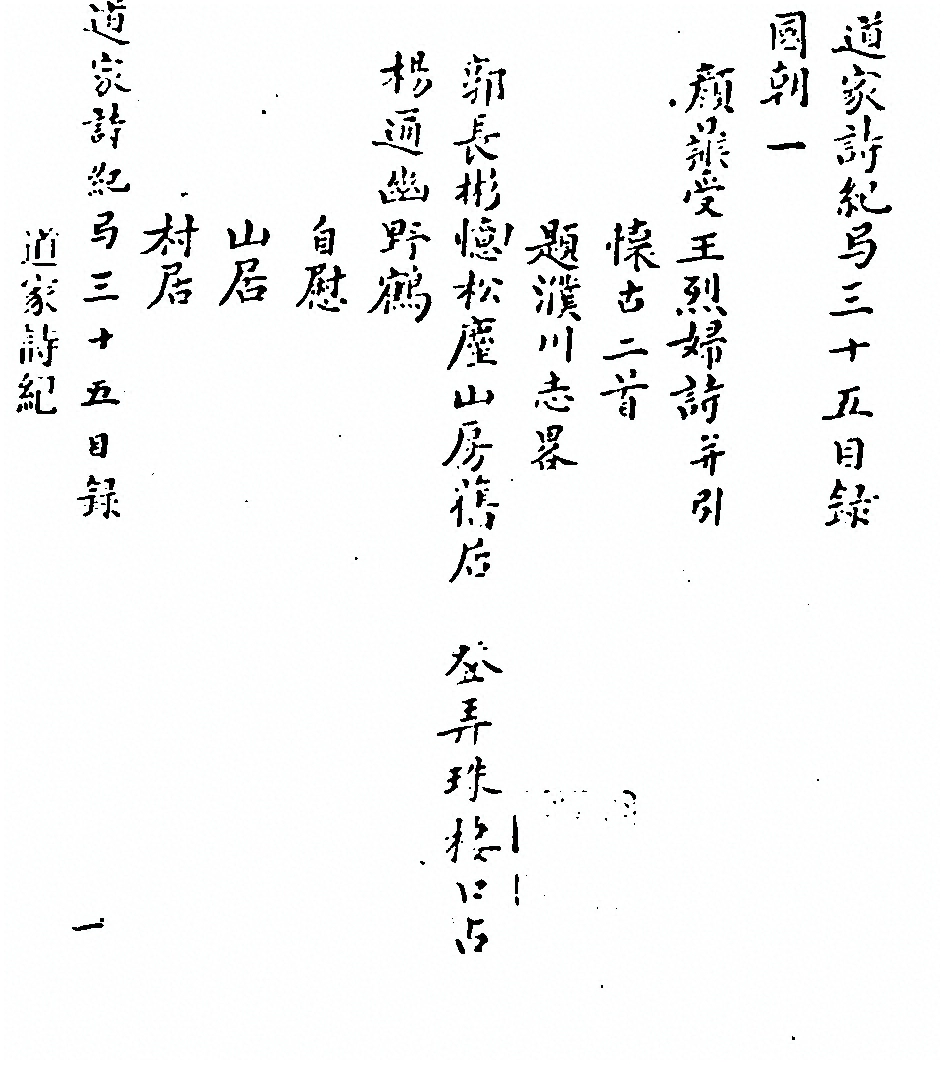 道家詩紀弓三十五目録
國朝一
顏受王烈婦詩并引
懐古二首
題濮川志畧
郭長彬憶松塵山房舊居 登弄珠楼口占
楊通幽野鶴
自慰
山居
村居
道家詩紀弓三十五目録 一
道家詩紀